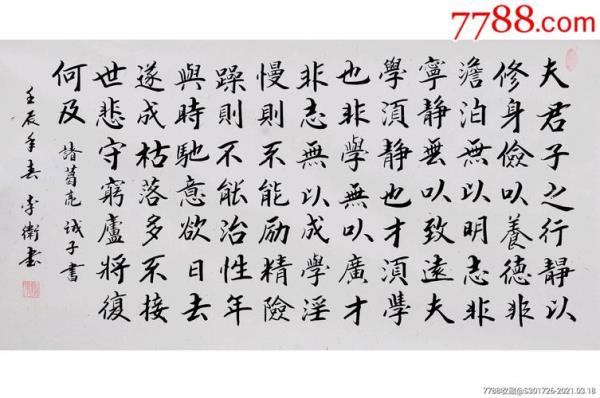 7788.com
夫君子之行靜以
修身儉以養德非
澹泊無以明志非
寧靜無以致遠夫
學須靜也才須學
也非學無以廣才
非志無以成學淫
慢則不能励精險
躁則不能治性年
與時馳意欲日去
遂成枯落多不接
世悲守窮廬將復
何及 諸葛亮诫子書
壬辰年春 李衛書
7788收藏@S301726-2021.03.18